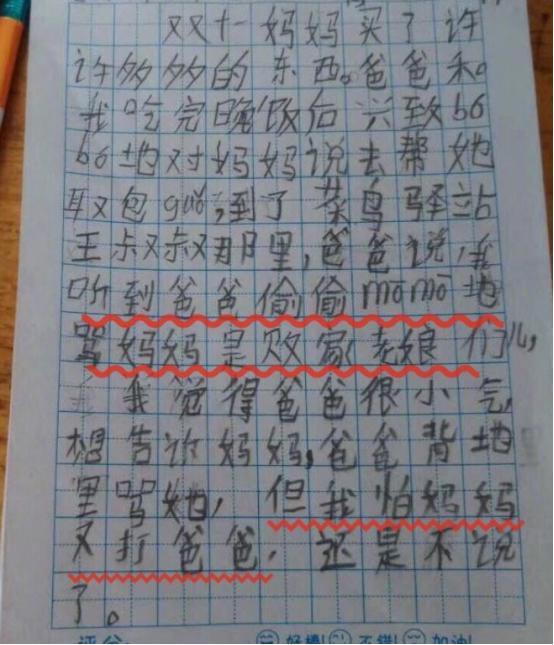 双十一妈妈买了许
许多多的东西。爸爸和。
我吃完晚饭后兴致bó
bó地对妈妈说去帮她
取包guǒ,到了菜鸟驿站
王叔叔那里,爸爸说,我
听到爸爸偷偷mōmō地
骂妈妈是败家老娘们儿,
我觉得爸爸很小气,
想告诉妈妈,爸爸背地
里骂她,但我怕妈妈
又打爸爸,还是不说
了。
好棒! 不错! 加油!